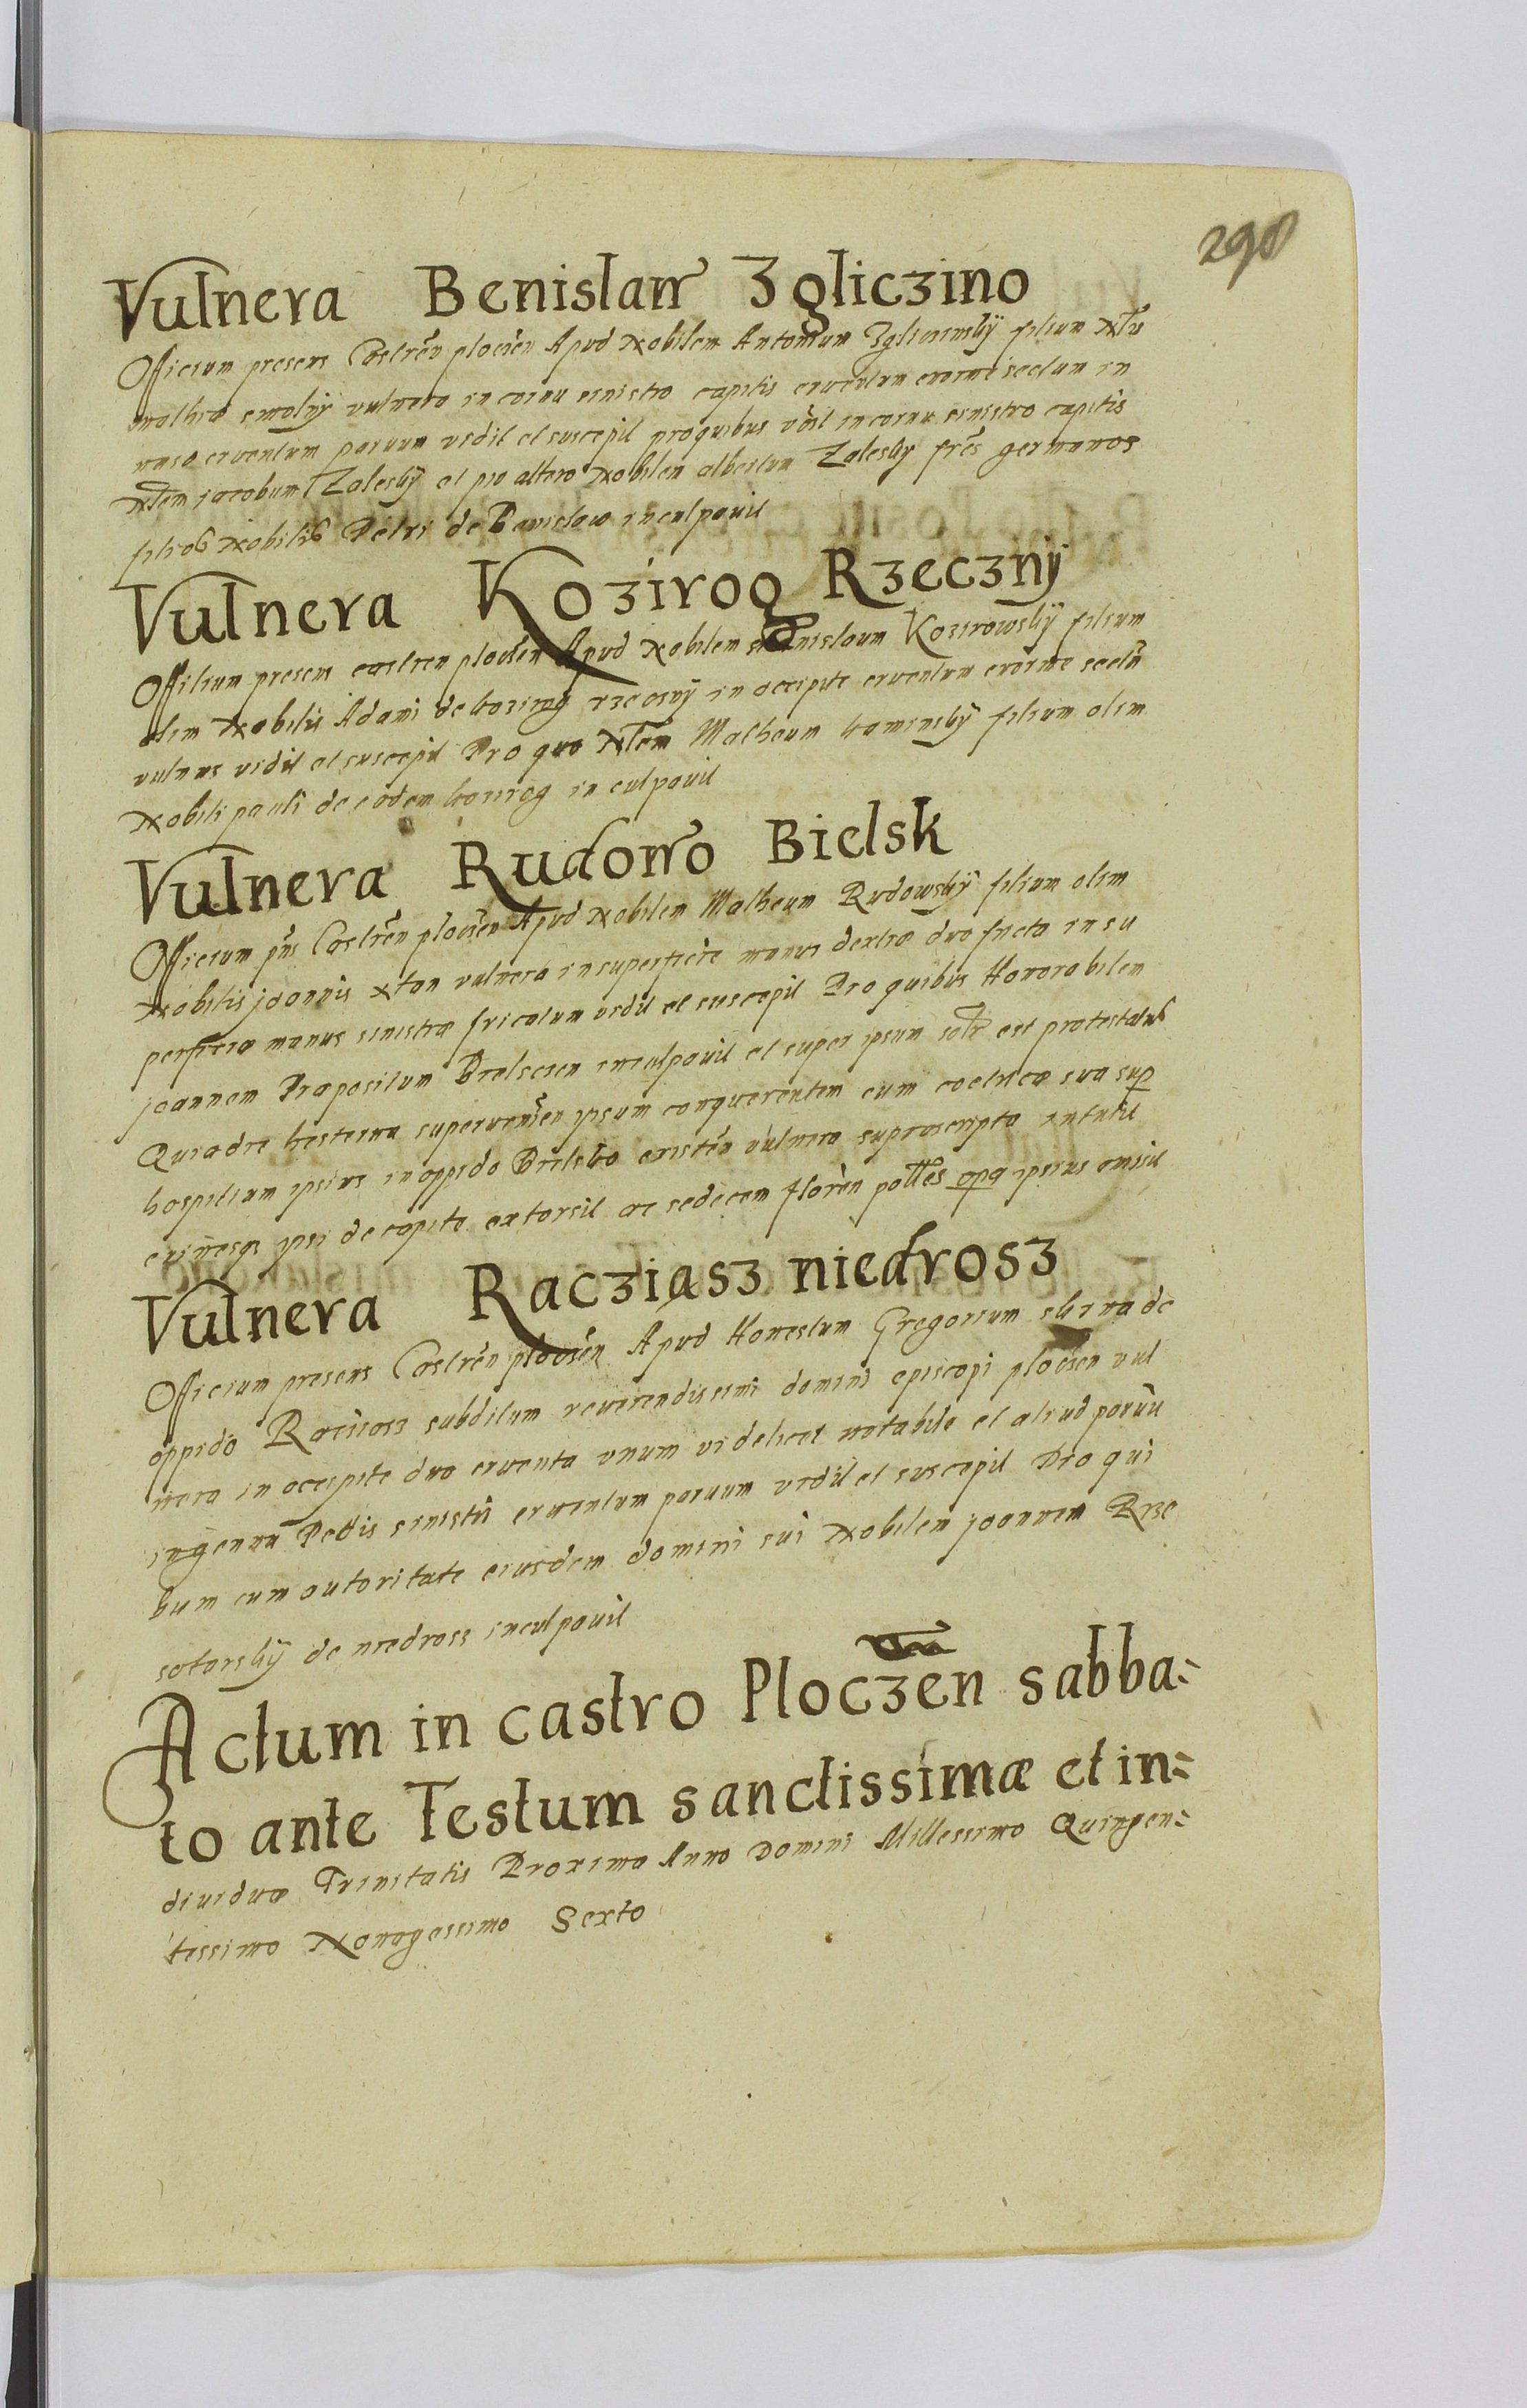 298
Vulnera Benislaw Zgliczino
Officium presens Castrēn plocēn Apud Nobilem Antonium Zgliczinskÿ filium
vulnera in cornu sinistro capitis cruentum enorme sectum in
naso cruentum paruum vidit et suscepit pro quibus in cornu sinistro capitis
Jacobum Zaleskÿ et pro altero Nobilem albertum Zaleskÿ frēs germanos
filios Nobilis Petri de Benislaw inculpauit
Vulnera Kozirog Rzecznÿ
Officium presens castren plocēn Apud Nobilem stanislaum Kozirowskÿ filium
olim Nobilis Adami de kozirog rzecznÿ in occipite cruentum enorme sectū
vulnus vidit et suscepit Pro quo Matheum kaminskÿ filium olim
Nobilis pauli de eadem kozirog inculpauit
Vulnera Rudowo Bielsk
Officium pn̄s Castrēn plocēn Apud Nobilem Matheum Rudowskÿ filium olim
Nobilis joannis vulnera in superficie manus dextræ duo in su
perficie manus sinistræ fricatum vidit et suscepit Pro quibus Honorabilem
joannem Præpositum Bielscen inculpauit et super ipsum est protestatus
Quia die hesterna ipsum conquerentem cum sua sup̄
hospitium ipsius in oppido Bielsko existēn vulnera suprascripta intulit
crinesq ipsi de capite extorsit ac sedecem florēn ipsius omisit
Vulnera Racziasz niedrosz
Officium presens Castrēn plocēn Apud Honestum Gregorium de
oppido Racziosz subditum reuerendissimi domini episcopi plocēn vul
nera in occipite duo cruenta vnum videlicet notabile et aliud paruū
in genu Pedis sinistri cruentum paruum vidit et suscepit Pro qui
bum cum autoritate eiusdem domini sui Nobilem joannem Rze
sotarskÿ de niedross inculpauit
Actum in castro Ploczen sabba=
to ante Festum sanctissimæ et in=
diuiduæ Trinitatis Proximo Anno Domini Millessimo Quingen=
tessimo Nonagessimo Sexto